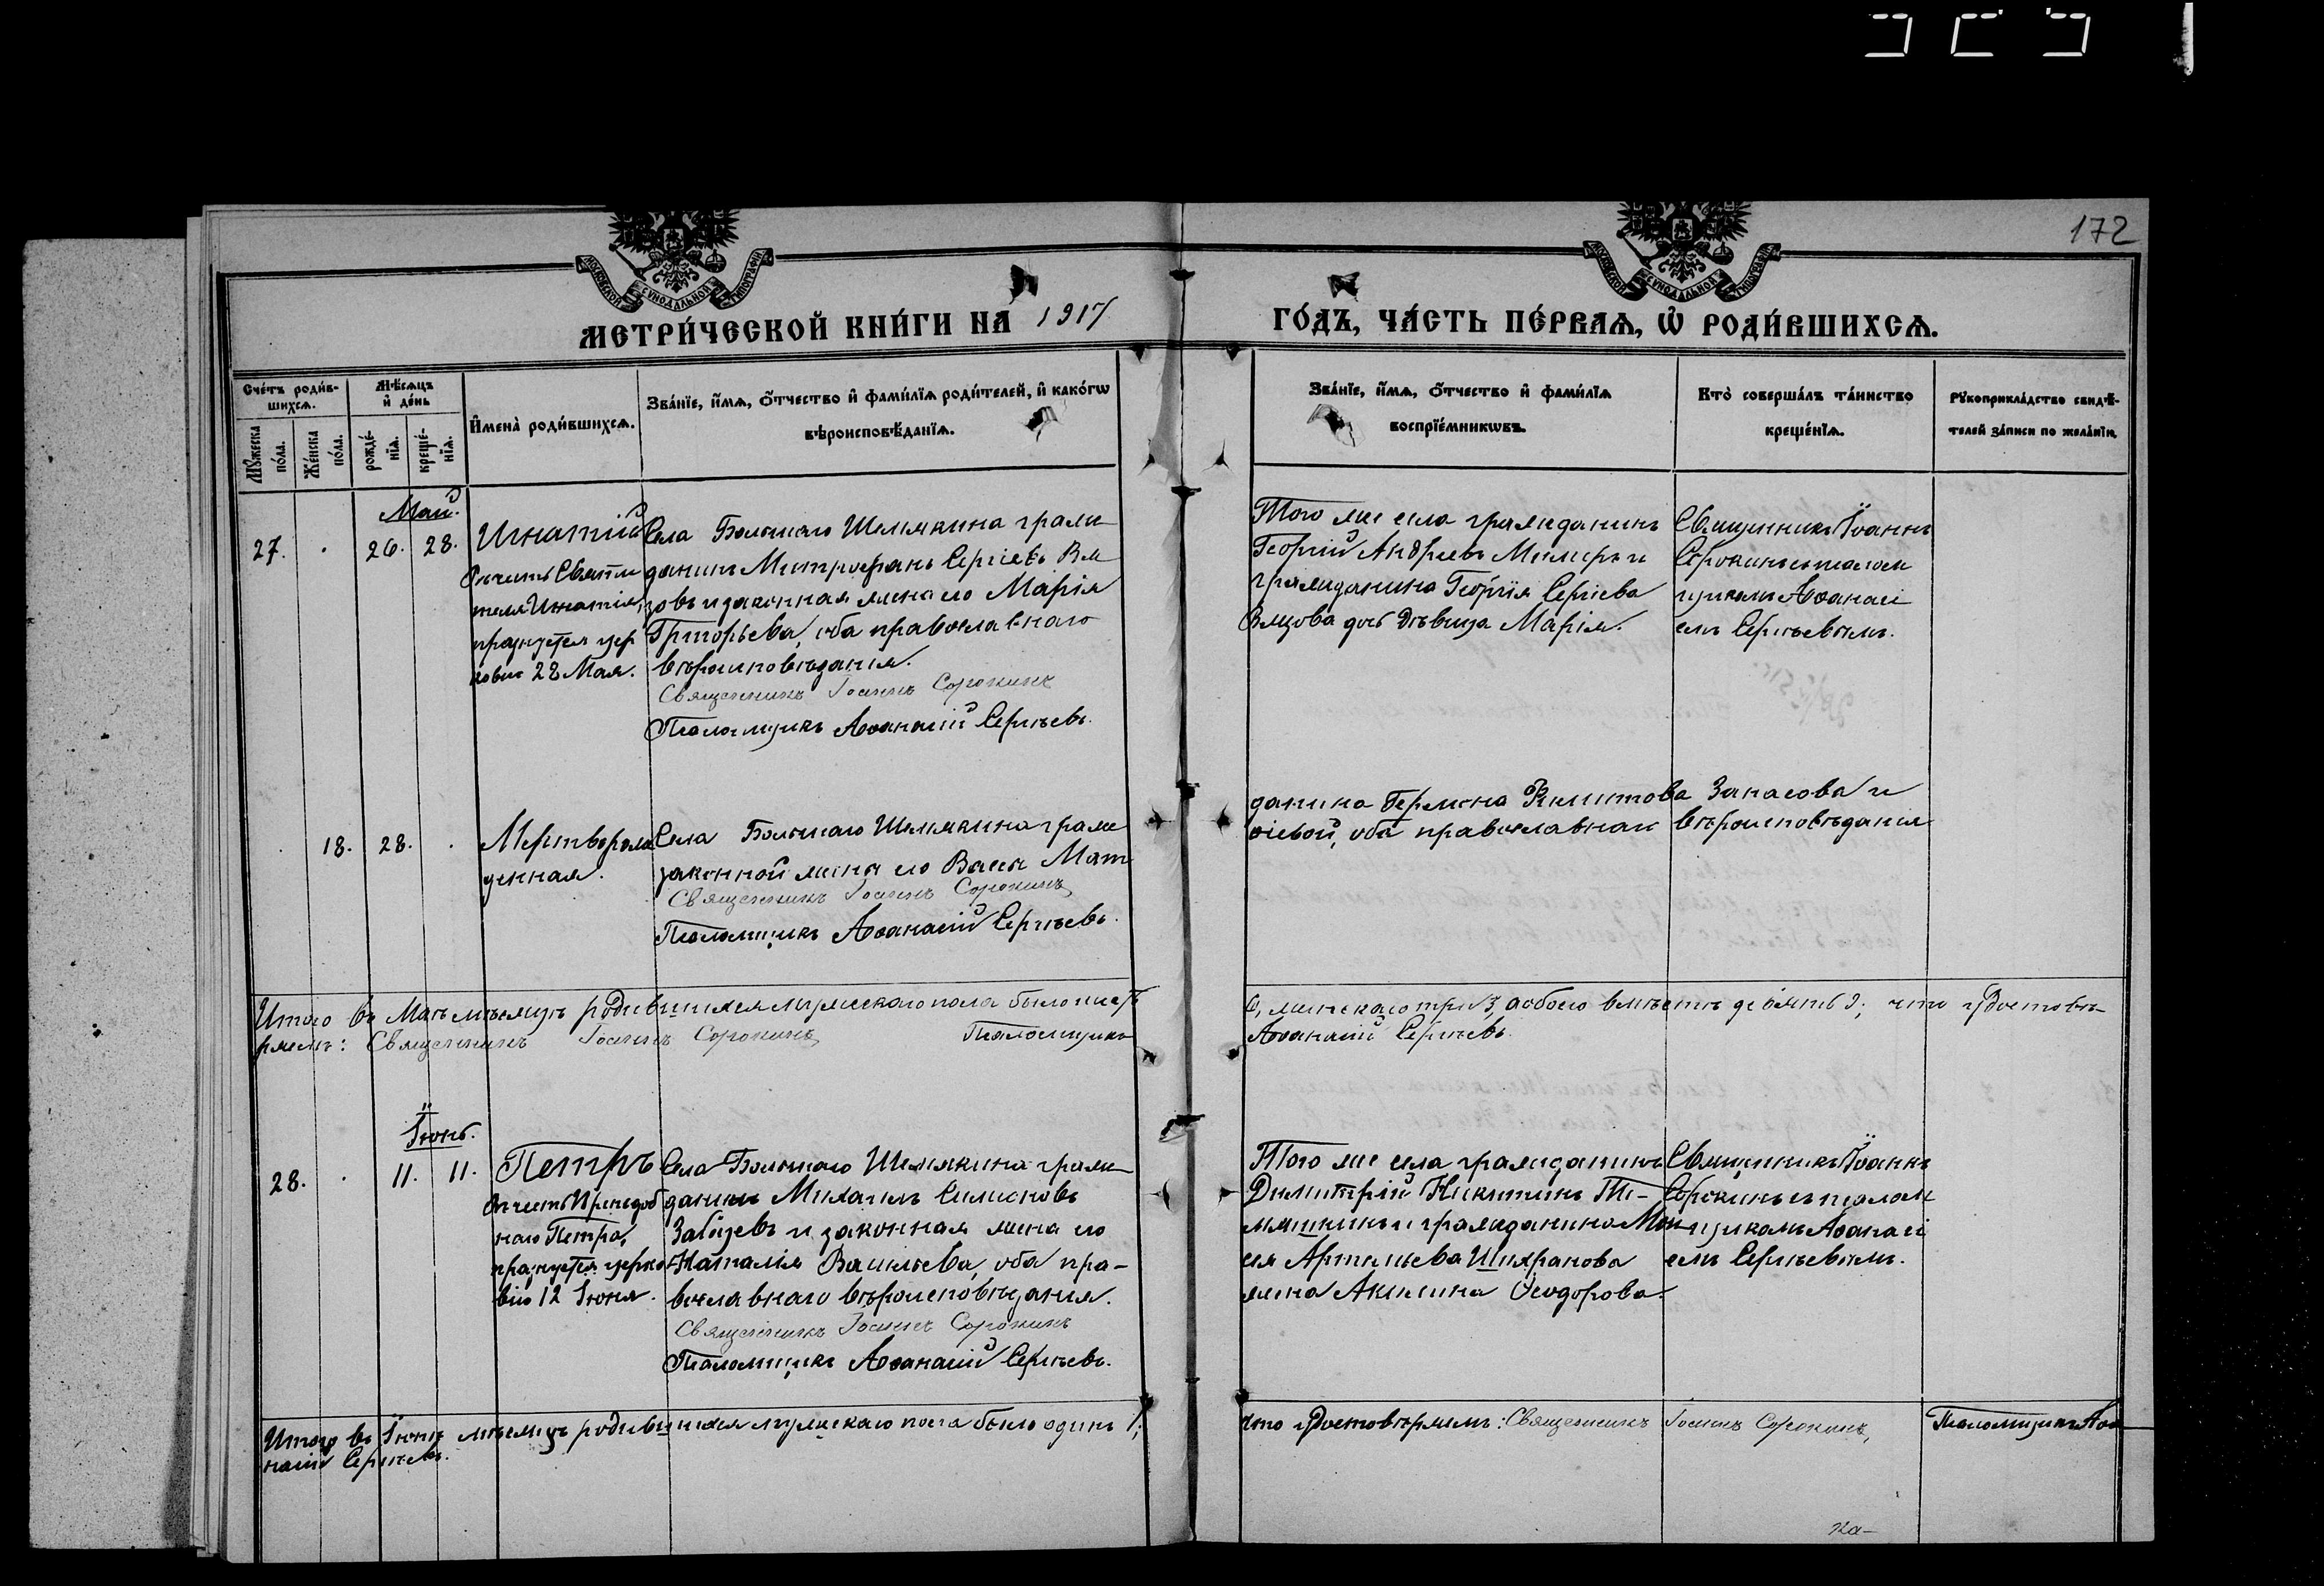 172
МОСКОВСКОЙ СѴНОДАЛЬНОЙ ТИПОГРАФІИ
МОСКОВСКОЙ СѴНОДАЛЬНОЙ ТИПОГРАФІИ
МЕТРИ́ЧЕСКОЙ КНИ́ГИ НА 1917 ГО́ДЪ, ЧА́СТЬ ПЕ́РВАѦ, Ѡ҆ РОДИ́ВШИХСѦ.
Сче́тъ роди́в-
шихсѧ.
Мꙋ́жеска
по́ла.
Же́нска
по́ла.
Мѣ́сѧцъ
и҆ де́нь
рожде́-
нїѧ.
креще́-
нїѧ.
И҆мена̀ роди́вшихсѧ.
Зва́нїе, и҆́мѧ, ѻ҆́тчество и҆ фами́лїѧ роди́телей, и҆ како́гѡ
вѣроисповѣ́данїѧ.
Зва́нїе, и҆́мѧ, ѻ҆́тчество и҆ фами́лїѧ
воспрїе́мникѡвъ.
Кто̀ соверша́лъ та́инство
креще́нїѧ.
Рꙋкоприкла́дство свидѣ́-
телей за́писи по жела́нїю.
Май.
27. 26. 28.
Игнатій
въ честь Святи
теля Игнатія,
празнуется цер
ковію 28 Мая.
Села Большаго Шемякина граж
данинъ Митрофанъ Сергіевъ Вя
зовъ и законная жена его Марія
Григорьева, оба православнаго
вѣроисповѣданія.
Священникъ Іоаннъ Сорокинъ
Псаломщикъ Аѳанасій Сергѣевъ.
Того же села гражданинъ
Георгій Андреевъ и
гражданина Георгія Сергіева
Вязова дочь дѣвица Марія.
Священникъ Іоаннъ
Сорокинъ съ псалом
щикомъ Аѳанасі
емъ Сергѣевымъ.
18. 28.
Мертворож
денная.
Села Большаго Шемякина граж
данина Герасима Филиппова Запасова и
законной жены его Васса Мат
ѳіевой, оба православнаго вѣроисповѣданія
Священникъ Іоаннъ Сорокинъ
Псаломщикъ Аѳанасій Сергѣевъ.
Итого въ Маѣ мѣсяцѣ родившихся мужескаго пола было шесть
6, женскаго три 3, а обоего вмѣстѣ девять 9; что удостовѣ-
ряемъ: Священникъ Іоаннъ Сорокинъ, Псаломщикъ
Аѳанасій Сергѣевъ.
Іюнь.
28. 11. 11.
Петръ
въ честь Преподоб
наго Петра,
празнуется церко-
вію 12 Іюня.
Села Большаго Шемякина граж
данинъ Михаилъ Симеоновъ
и законная жена его
Наталія Васильева, оба пра-
вославнаго вѣроисповѣданія.
Священникъ Іоаннъ Сорокинъ
Псаломщикъ Аѳанасій Сергѣевъ.
Того же села гражданинъ
Димитрій Никитинъ Ти-
мяшкинъ и гражданина Мои
сея Артемьева
жена Акилина Ѳеодорова.
Священникъ Іоаннъ
Сорокинъ съ псалом
щикомъ Аѳанасі
емъ Сергѣевымъ.
Итого въ Іюнѣ мѣсяцѣ родившихся мужескаго пола было одинъ 1;
что удостовѣряемъ: Священникъ Іоаннъ Сорокинъ, Псаломщикъ Аѳа
насій Сергѣевъ.